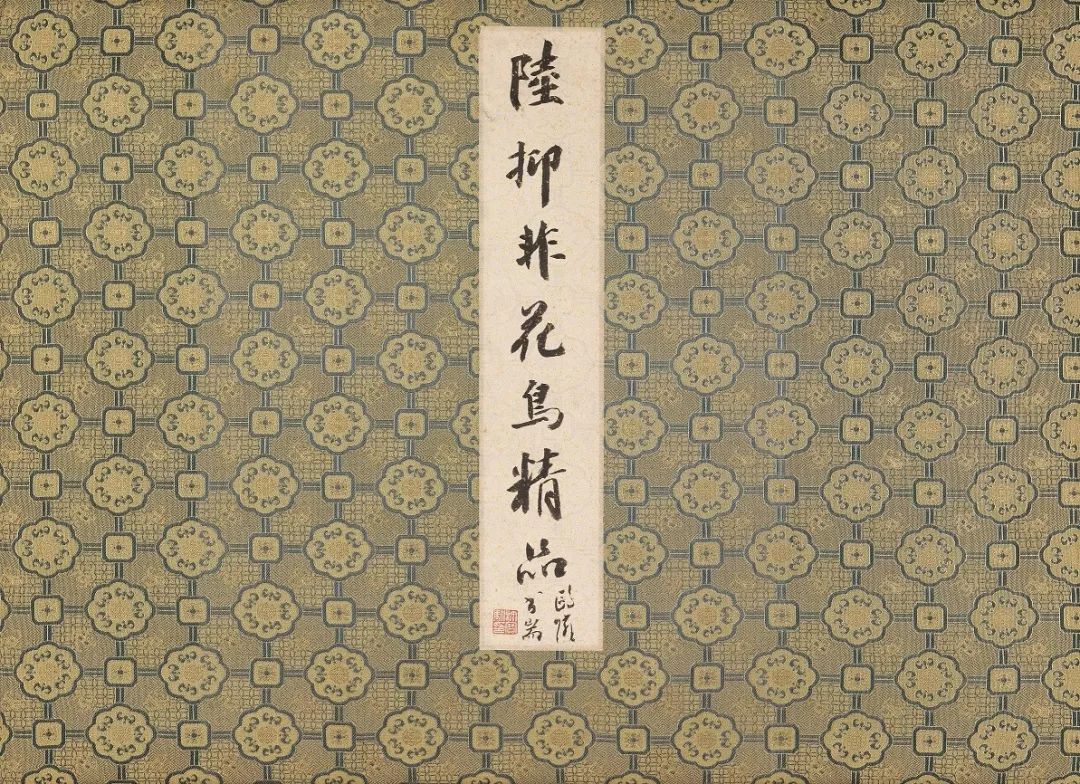 陸抑非花鳥精品